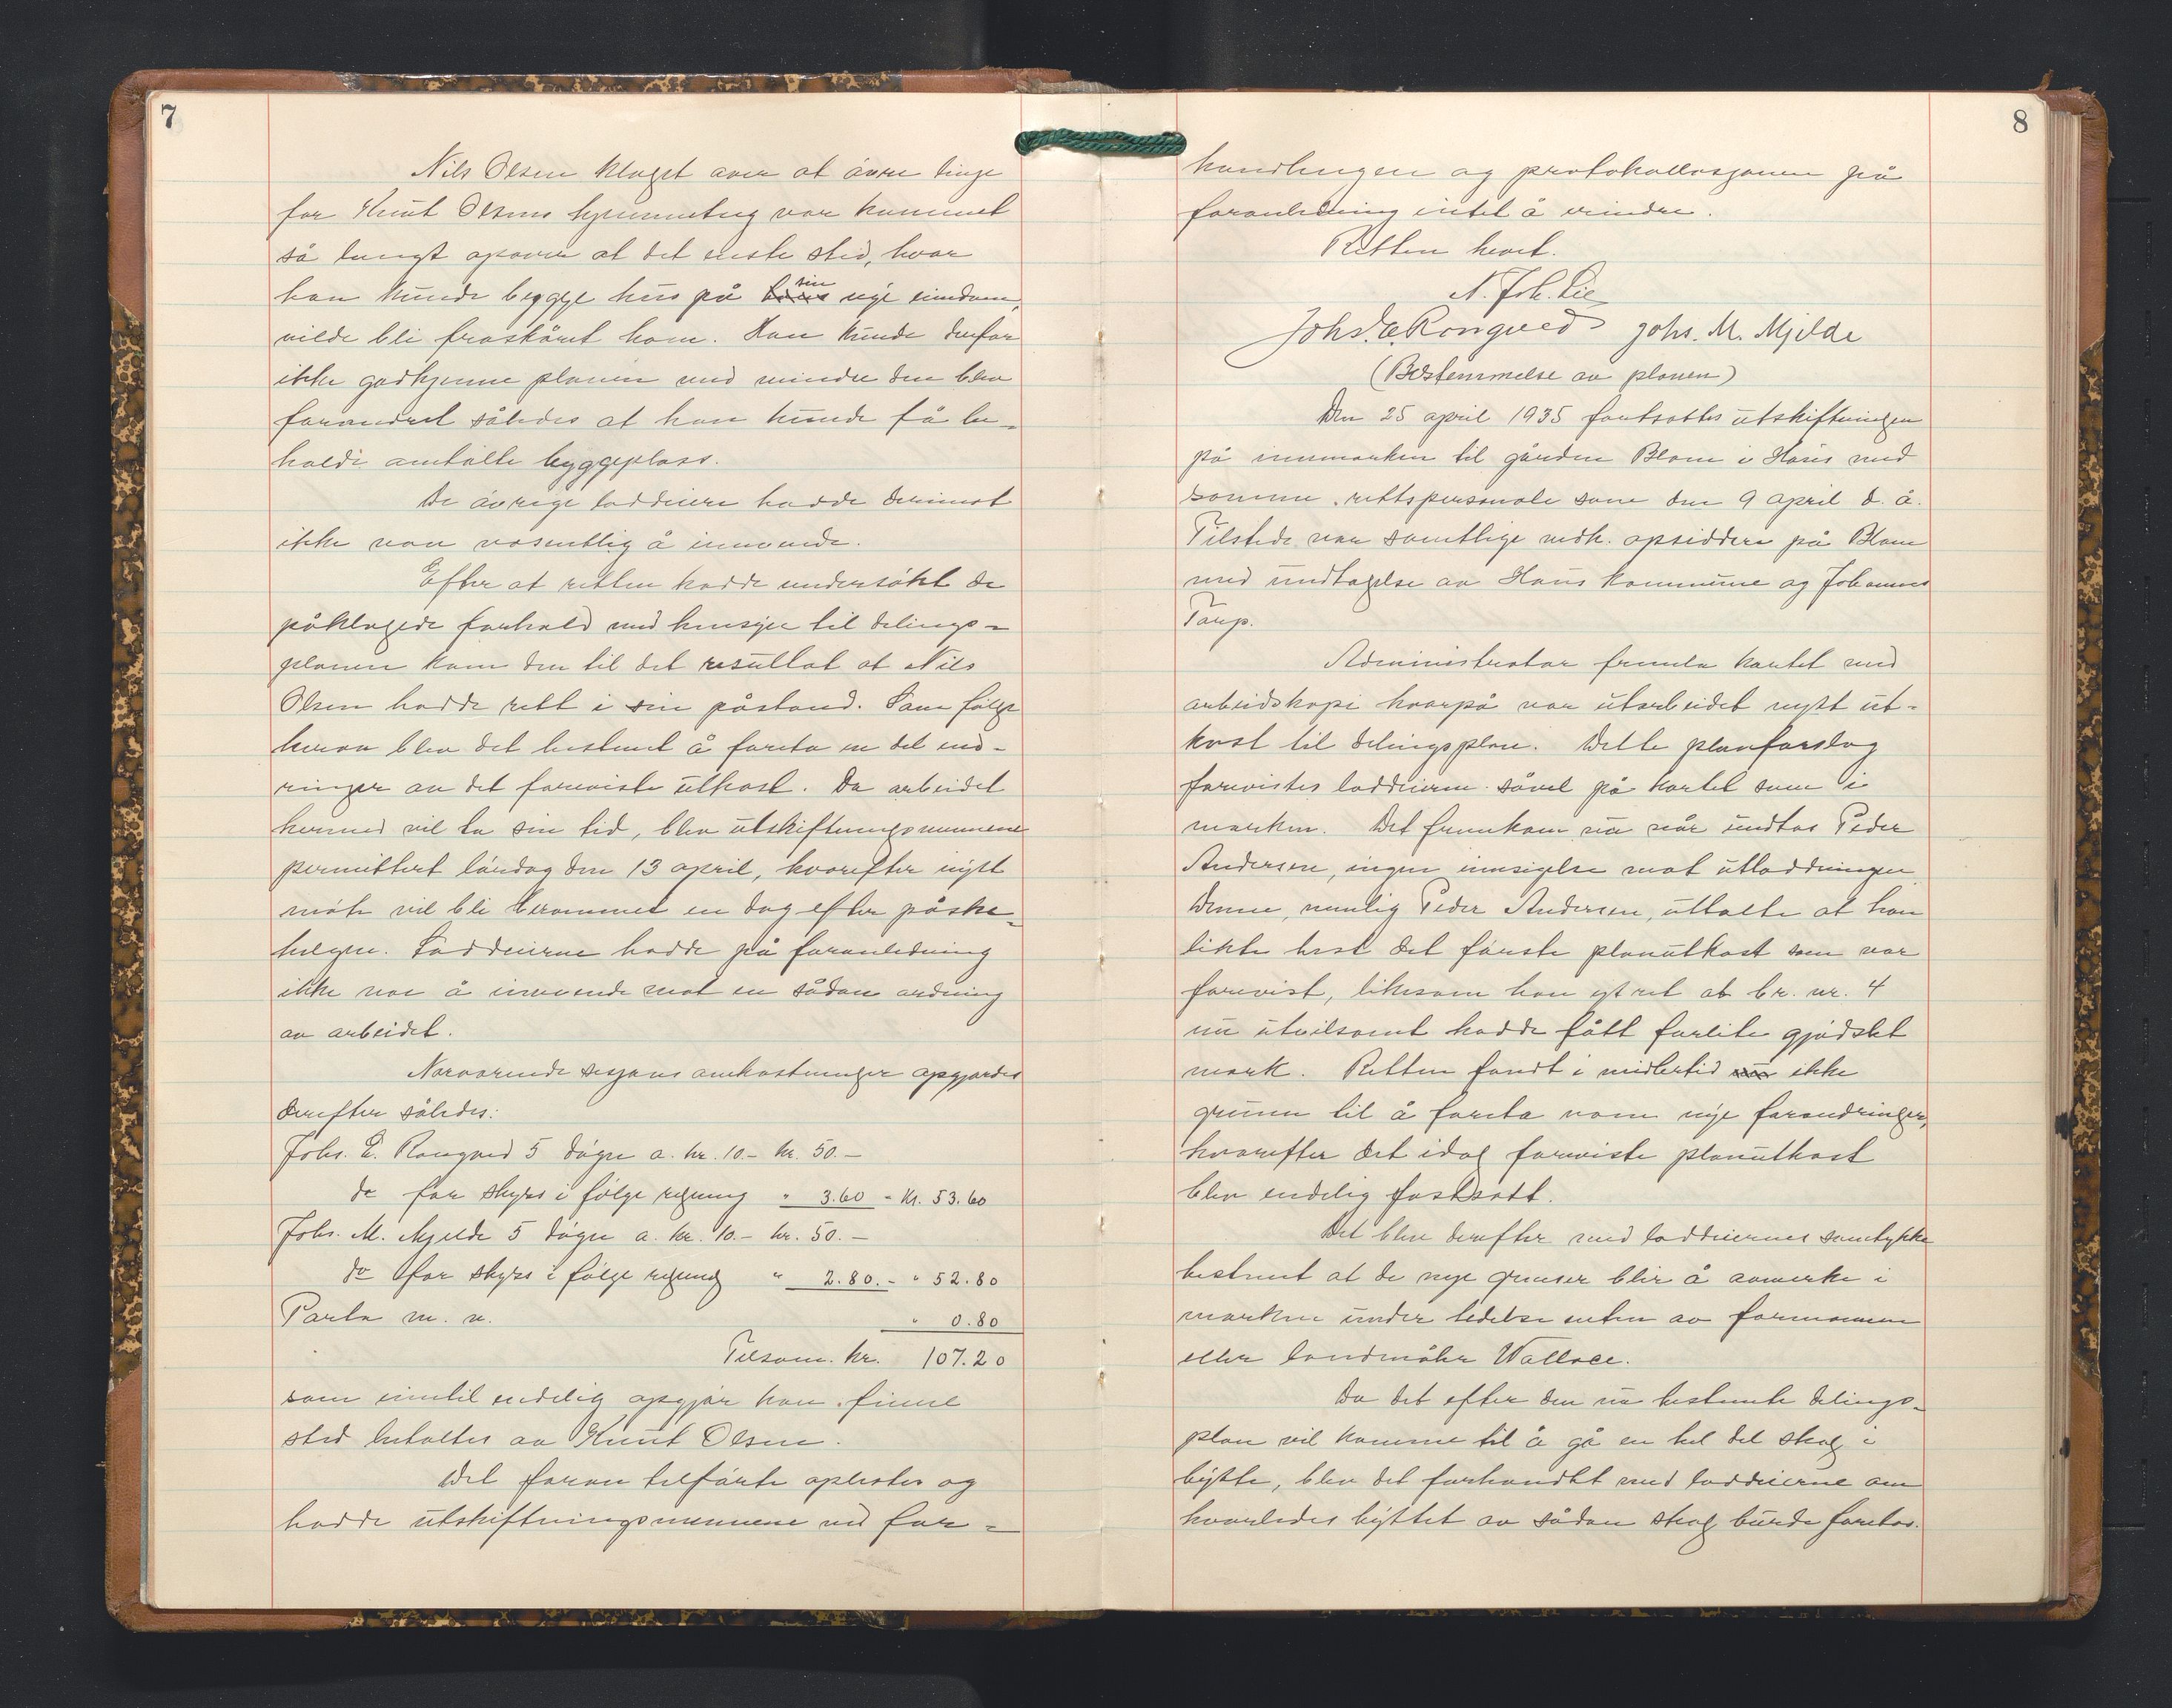 7
Nils Olsen klaget over at övre linje
for Knut Olsens hjemmeteig var kommet
så langt opover at det eneste sted, hvor
han kunde bygge hus på sin nye eiendom,
vilde bli fraskåret ham. Han kunde derfor
ikke godkjenne planen med mindre den blev
forandret således at han kunde få be-
holde omtalte byggeplass.
De övrige loddeiere hadde derimot
ikke noe vesentlig å innvende.
Efter at retten hadde undersökt de
påklagede forhold med hensyn til delings-
planen kom den til det resultat at Nils
Olsen hadde rett i sin påstand. Som fölge
herav blev det bestemt å foreta en del end-
ringer av det foreviste utkast. Da arbeidet
hermed vil ta sin tid, blev utskiftningsmennene
permittert lördag den 13 april, hvorefter nytt
möte vil bli berammet en dag efter påske-
helgen. Loddeierne hadde på foranledning
ikke noe å innvende mot en sådan ordning
av arbeidet.
Nærværende sesjons omkostninger opgjordes
derefter således:
Johs. E. Rongved 5 dögn a. kr. 10.- kr. 50.-
do for skyss i fölge regning " 3.60 - Kr. 53.60
Johs. M. Mjelde 5 dögn a. kr. 10.- kr. 50.-
do for skyss i fölge regning " 2.80.- " 52.80
Porto m. v. " 0.80
Tilsam. kr. 107.20
som inntil endelig opgjör kan finne
sted betaltes av Knut Olsen.
Det foran tilförte oplestes og
hadde utskiftningsmennene ved for-
8
handlingen og protokollasjonen på
foranledning intet å erindre.
Retten hevet.
N. Joh. Lie
Johs. E. Rongved Johs. M. Mjelde
(Bestemmelse av planen)
Den 25 april 1935 fortsattes utskiftningen
på innmarken til gården Blom i Haus med
samme rettspersonale som den 9 april d. å.
Tilstede var samtlige vedk. opsiddere på Blom
med undtagelse av Haus kommune og Johannes
Taup.
Administrator fremla kartet med
arbeidskopi hvorpå var utarbeidet nytt ut-
kast til delingsplan. Dette planforslag
forevistes loddeierne såvel på kartet som i
marken. Det fremkom nu når undtas Peder
Andersen, ingen innsigelse mot utloddningen.
Denne, nemlig Peder Andersen, uttalte at han
likte best det förste planutkast som var
forevist, likesom han ytret at br. nr. 4
nu utvilsomt hadde fått forlite gjödslet
mark. Retten fandt imidlertid ikke
grunn til å foreta noen nye forandringer,
hvorefter det idag foreviste planutkast
blev endelig fastsatt.
Det blev derefter med loddeiernes samtykke
bestemt at de nye grenser blir å avmerke i
marken under ledelse enten av formannen
eller landmåler Wallace.
Da det efter den nu bestemte delings-
plan vil komme til å gå en hel del skog i
bytte, blev det forhandlet med loddeierne om
hvorledes byttet av sådan skog burde foretas.